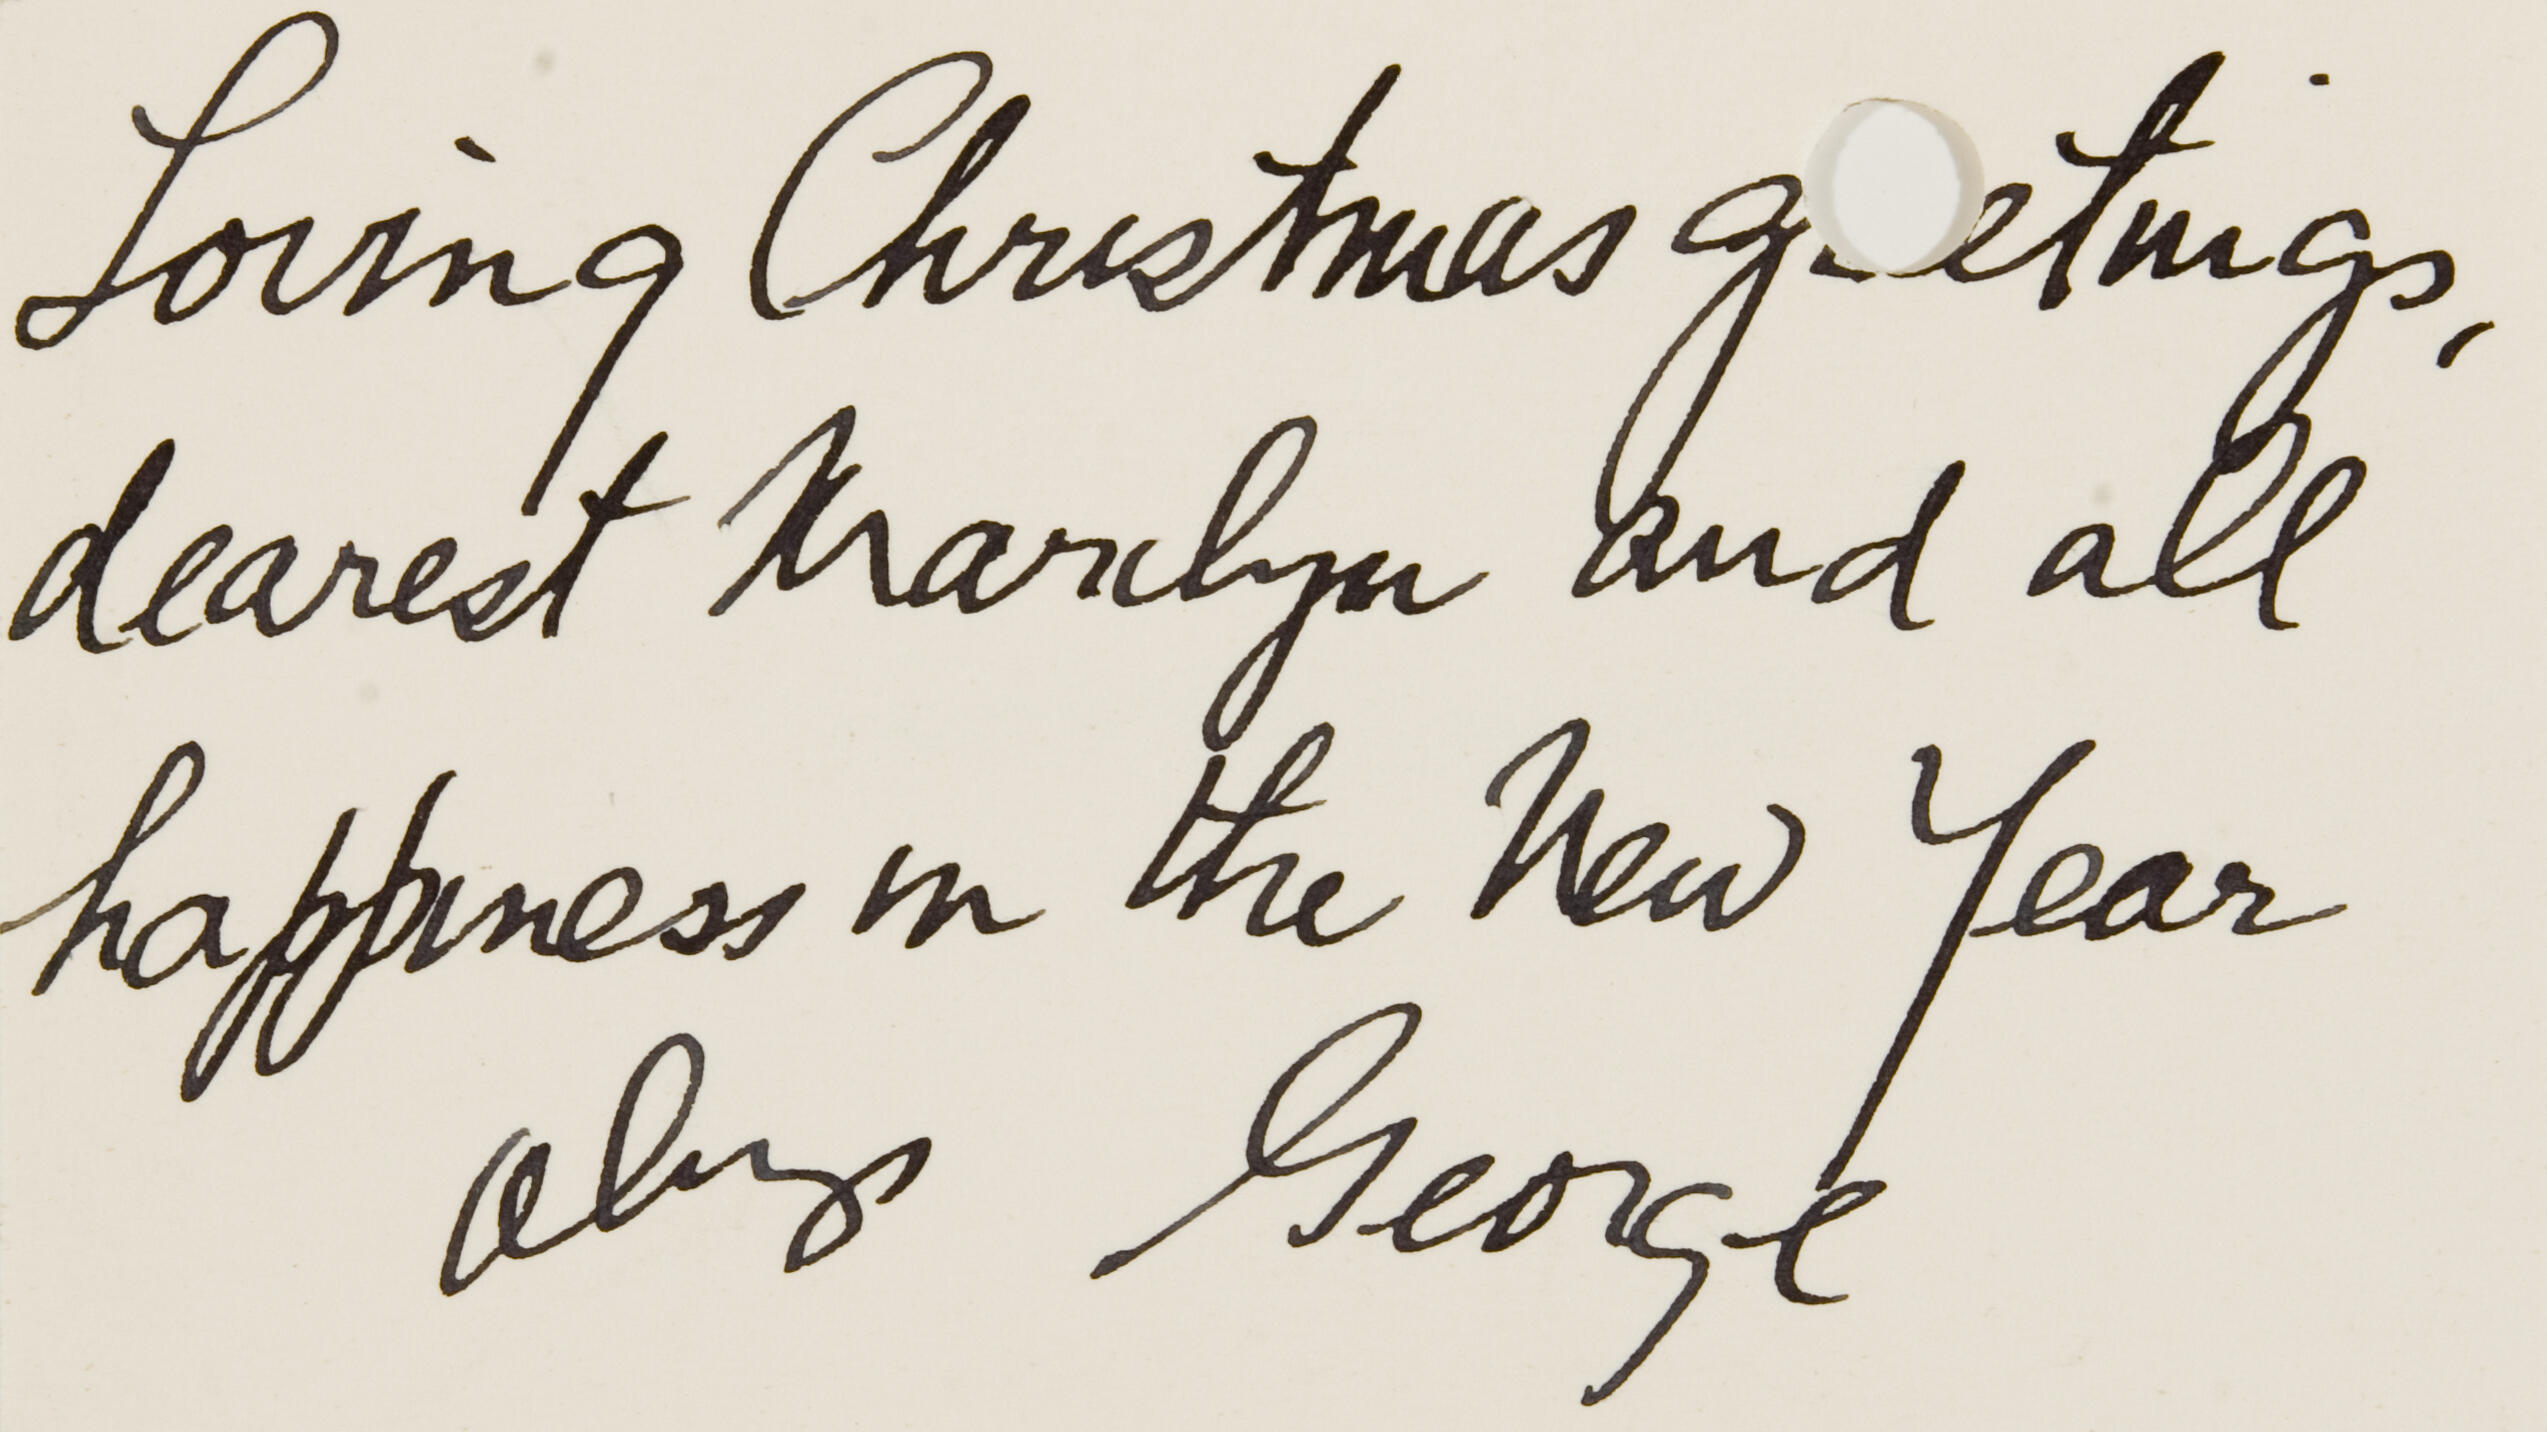 Loving Christmas greetings,
dearest Marilyn and all
happiness in the New Year
always George